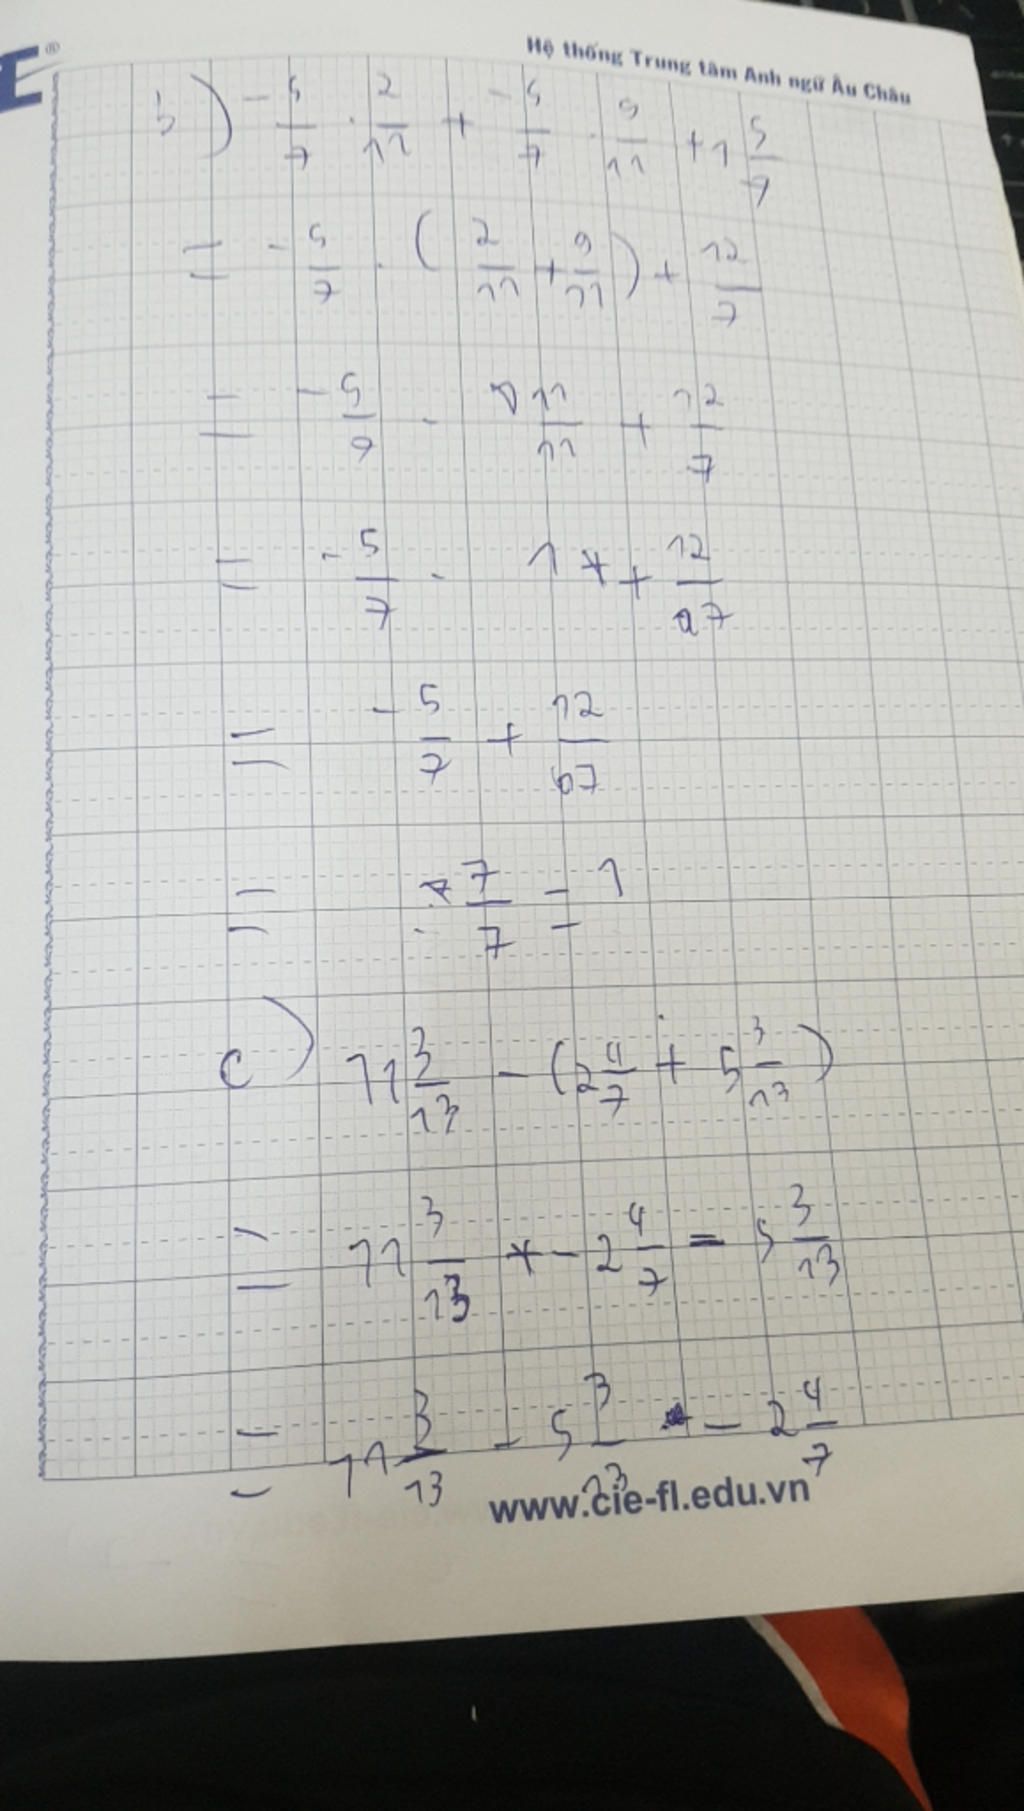 E®
Hệ thống Trung tâm Anh ngữ Âu Châu
b) -5/7 . 2/11 + -5/7 . 9/11 + 1 5/7
= -5/7 . (2/11 + 9/11) + 12/7
= -5/9 . 11/11 + 12/7
= -5/7 . 1 + 12/7
= -5/7 + 12/7
= 7/7 = 1
c) 11 3/13 - (2 4/7 + 5 3/13)
= 11 3/13 - 2 4/7 - 5 3/13
= 11 3/13 - 5 3/13 - 2 4/7
www.cie-fl.edu.vn